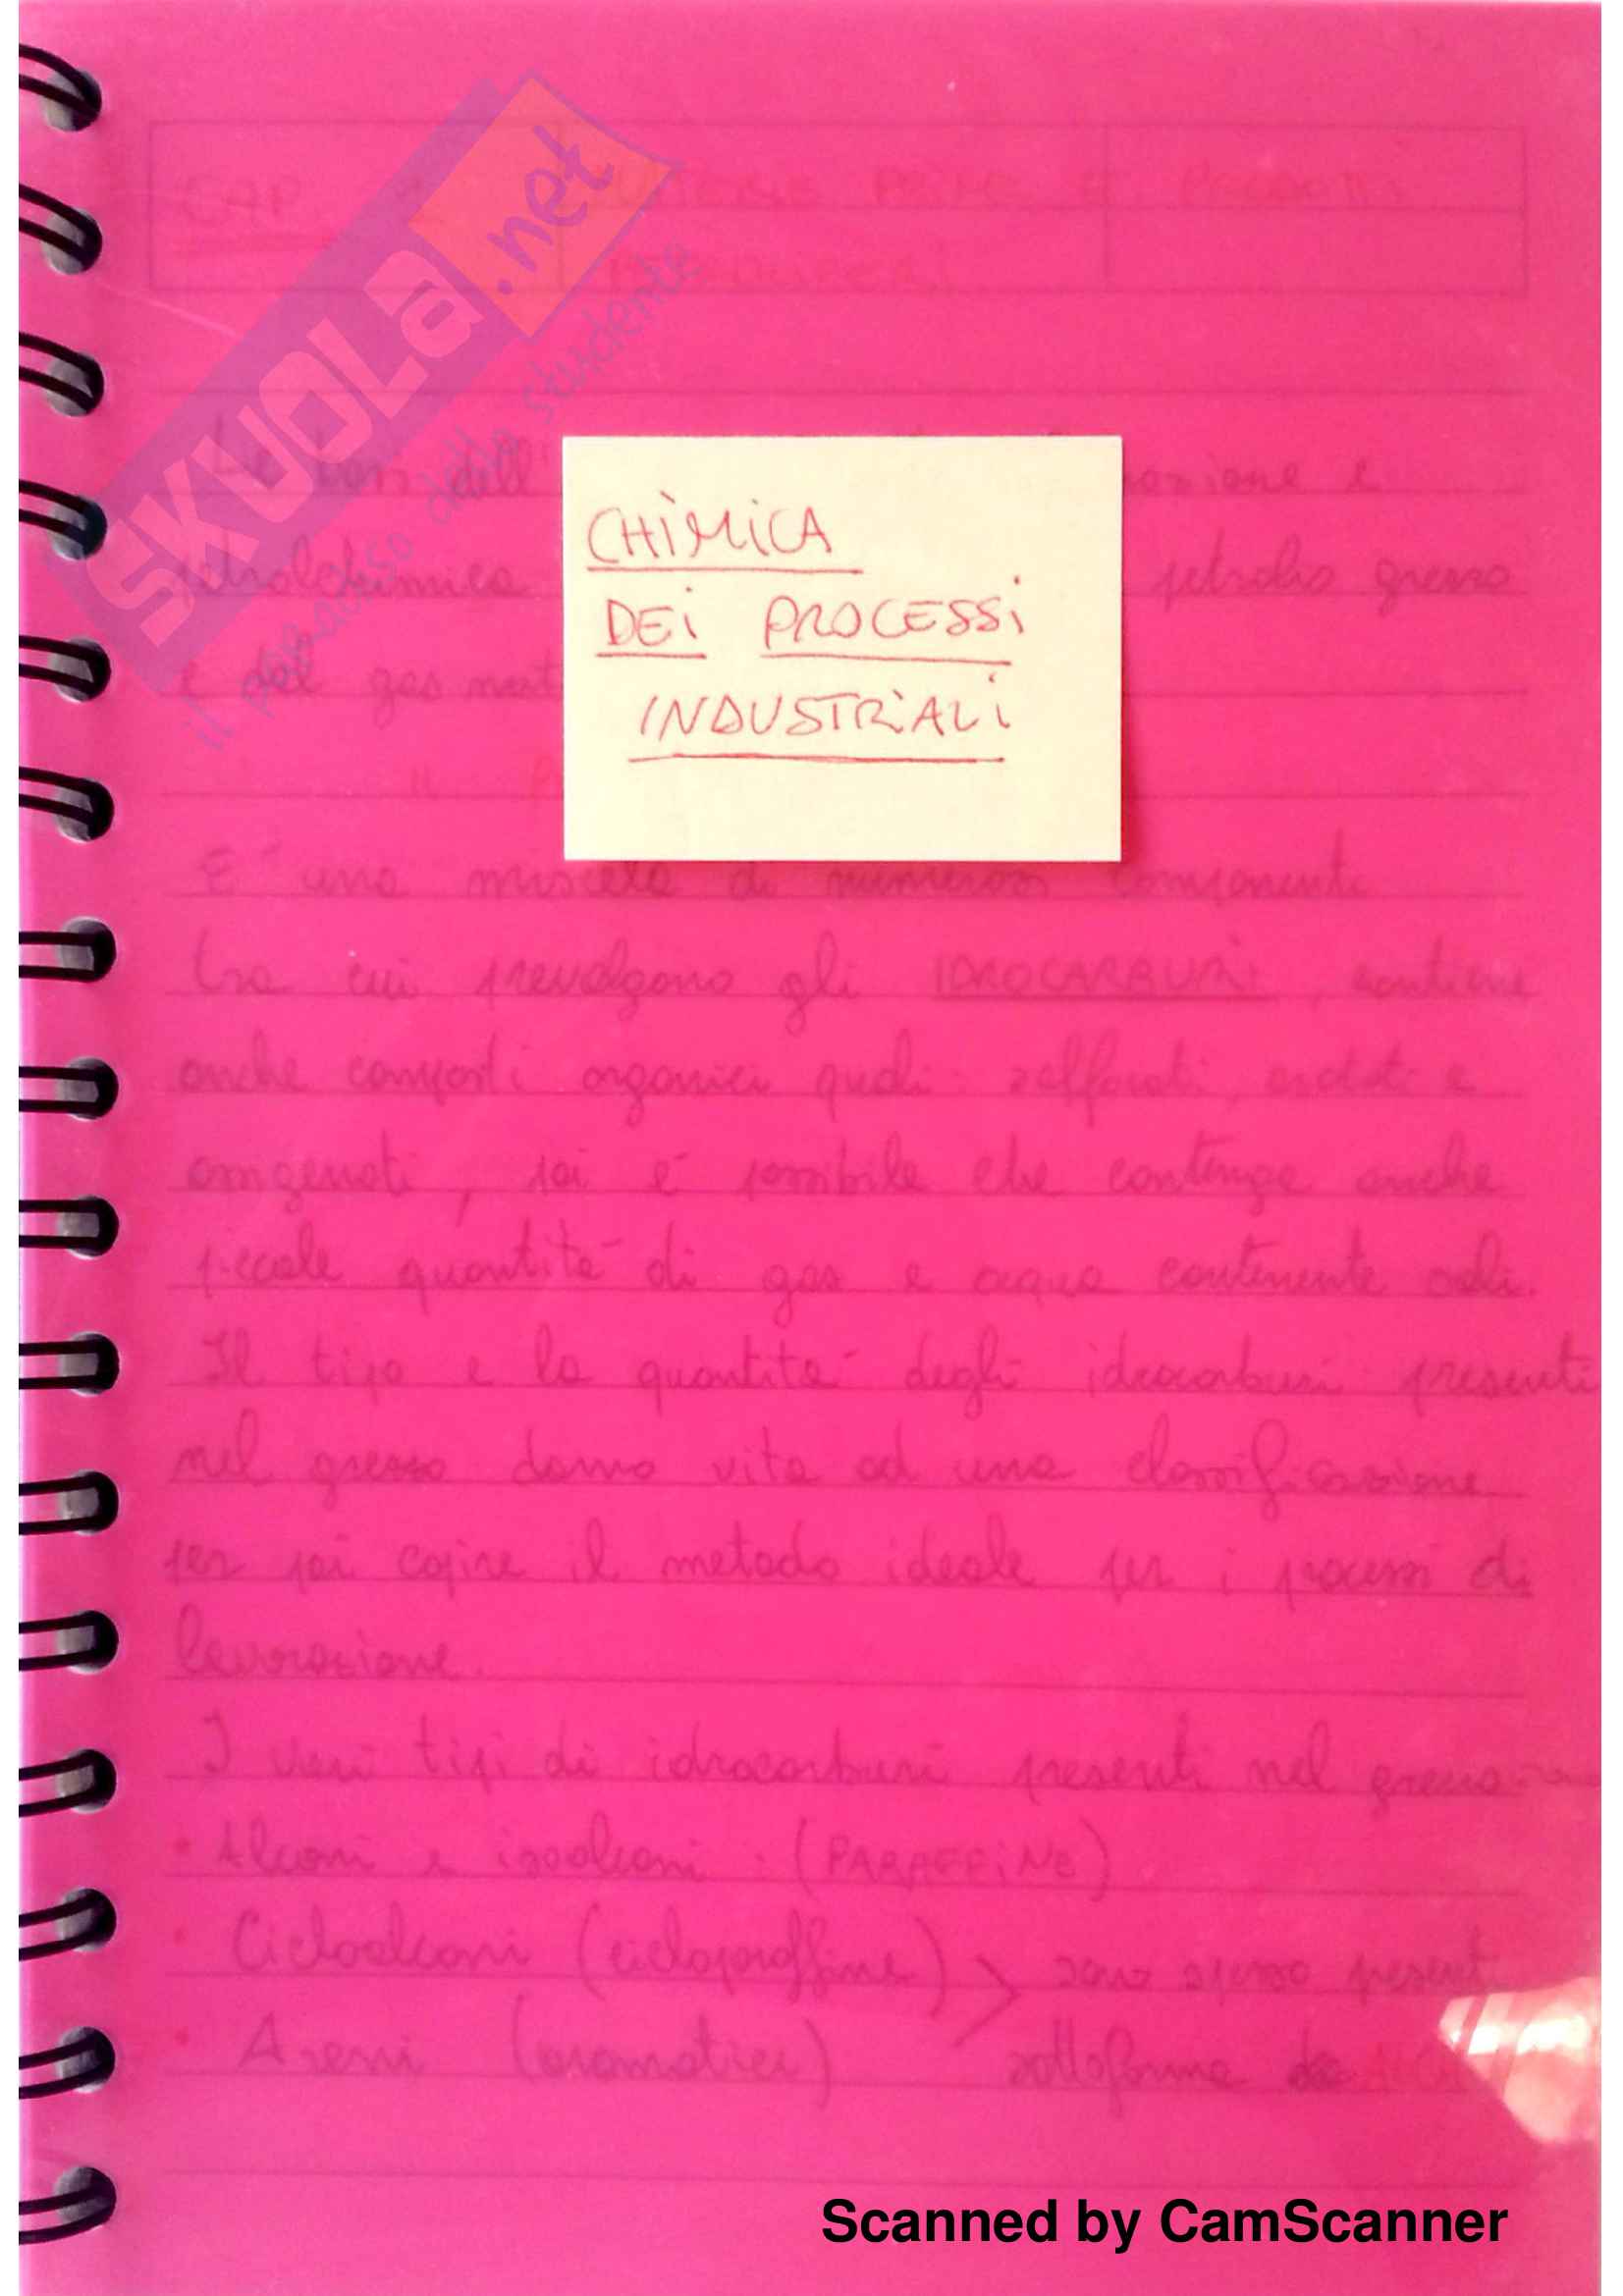 CAP. MATERIE PRIME E PRODOTTI
SKUOLA.net
il paradiso dello studente
Le basi dell' razione e
CHIMICA
DEI PROCESSI
INDUSTRIALI
petrolchimica petrolio grezzo
e del gas nat
IL P
E' una miscela di numerosi componenti
tra cui prevalgono gli IDROCARBURI, contiene
anche composti organici quali: solforati, azotati e
ossigenati, poi è possibile che contenga anche
piccole quantità di gas e acqua contenente sali.
Il tipo e la quantità degli idrocarburi presenti
nel grezzo danno vita ad una classificazione
per poi capire il metodo ideale per i processi di
lavorazione.
I vari tipi di idrocarburi presenti nel grezzo
• Alcani e isoalcani : (PARAFFINE)
• Cicloalcani (cicloparaffine) > sono spesso presenti
• Areni (aromatici) sottoforma di
Scanned by CamScanner